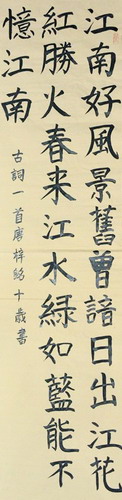 江南好風景舊曾諳日出江花
紅勝火春来江水綠如藍能不
憶江南
古詞一首唐梓銘十歲書